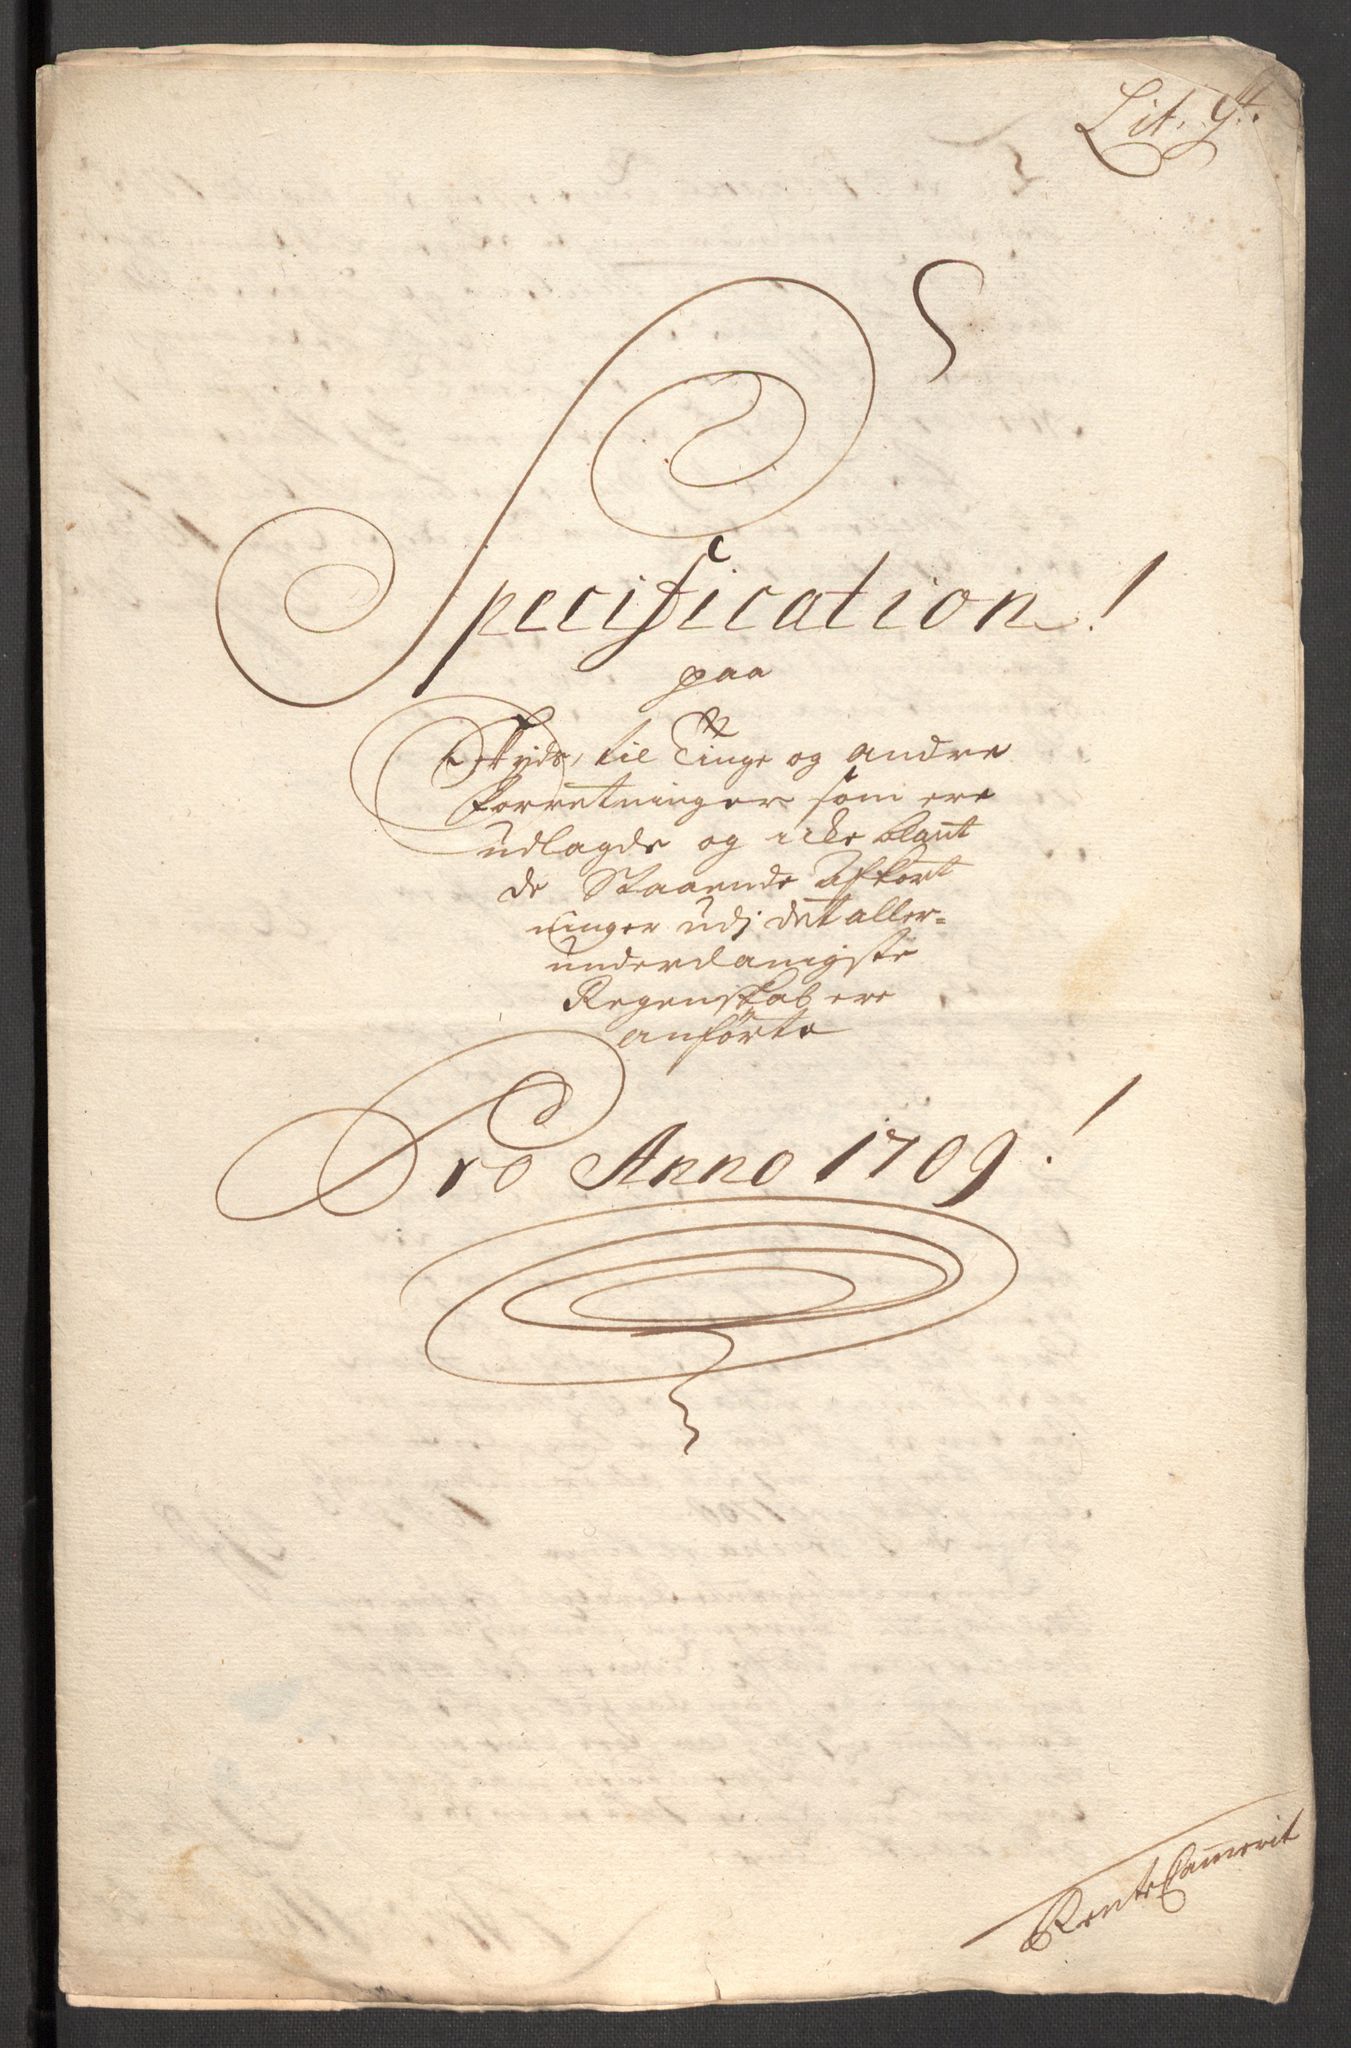 Lit. Y#.
Specification!
paa
Skyds, til Tinge og andre
Forretninger som ere
udlagde og icke blant
de Staaende Afkort
ninger udj det aller-
underdanigste
Regenskab ere
anførte
Pro Anno 1709!
Rente Cammerit